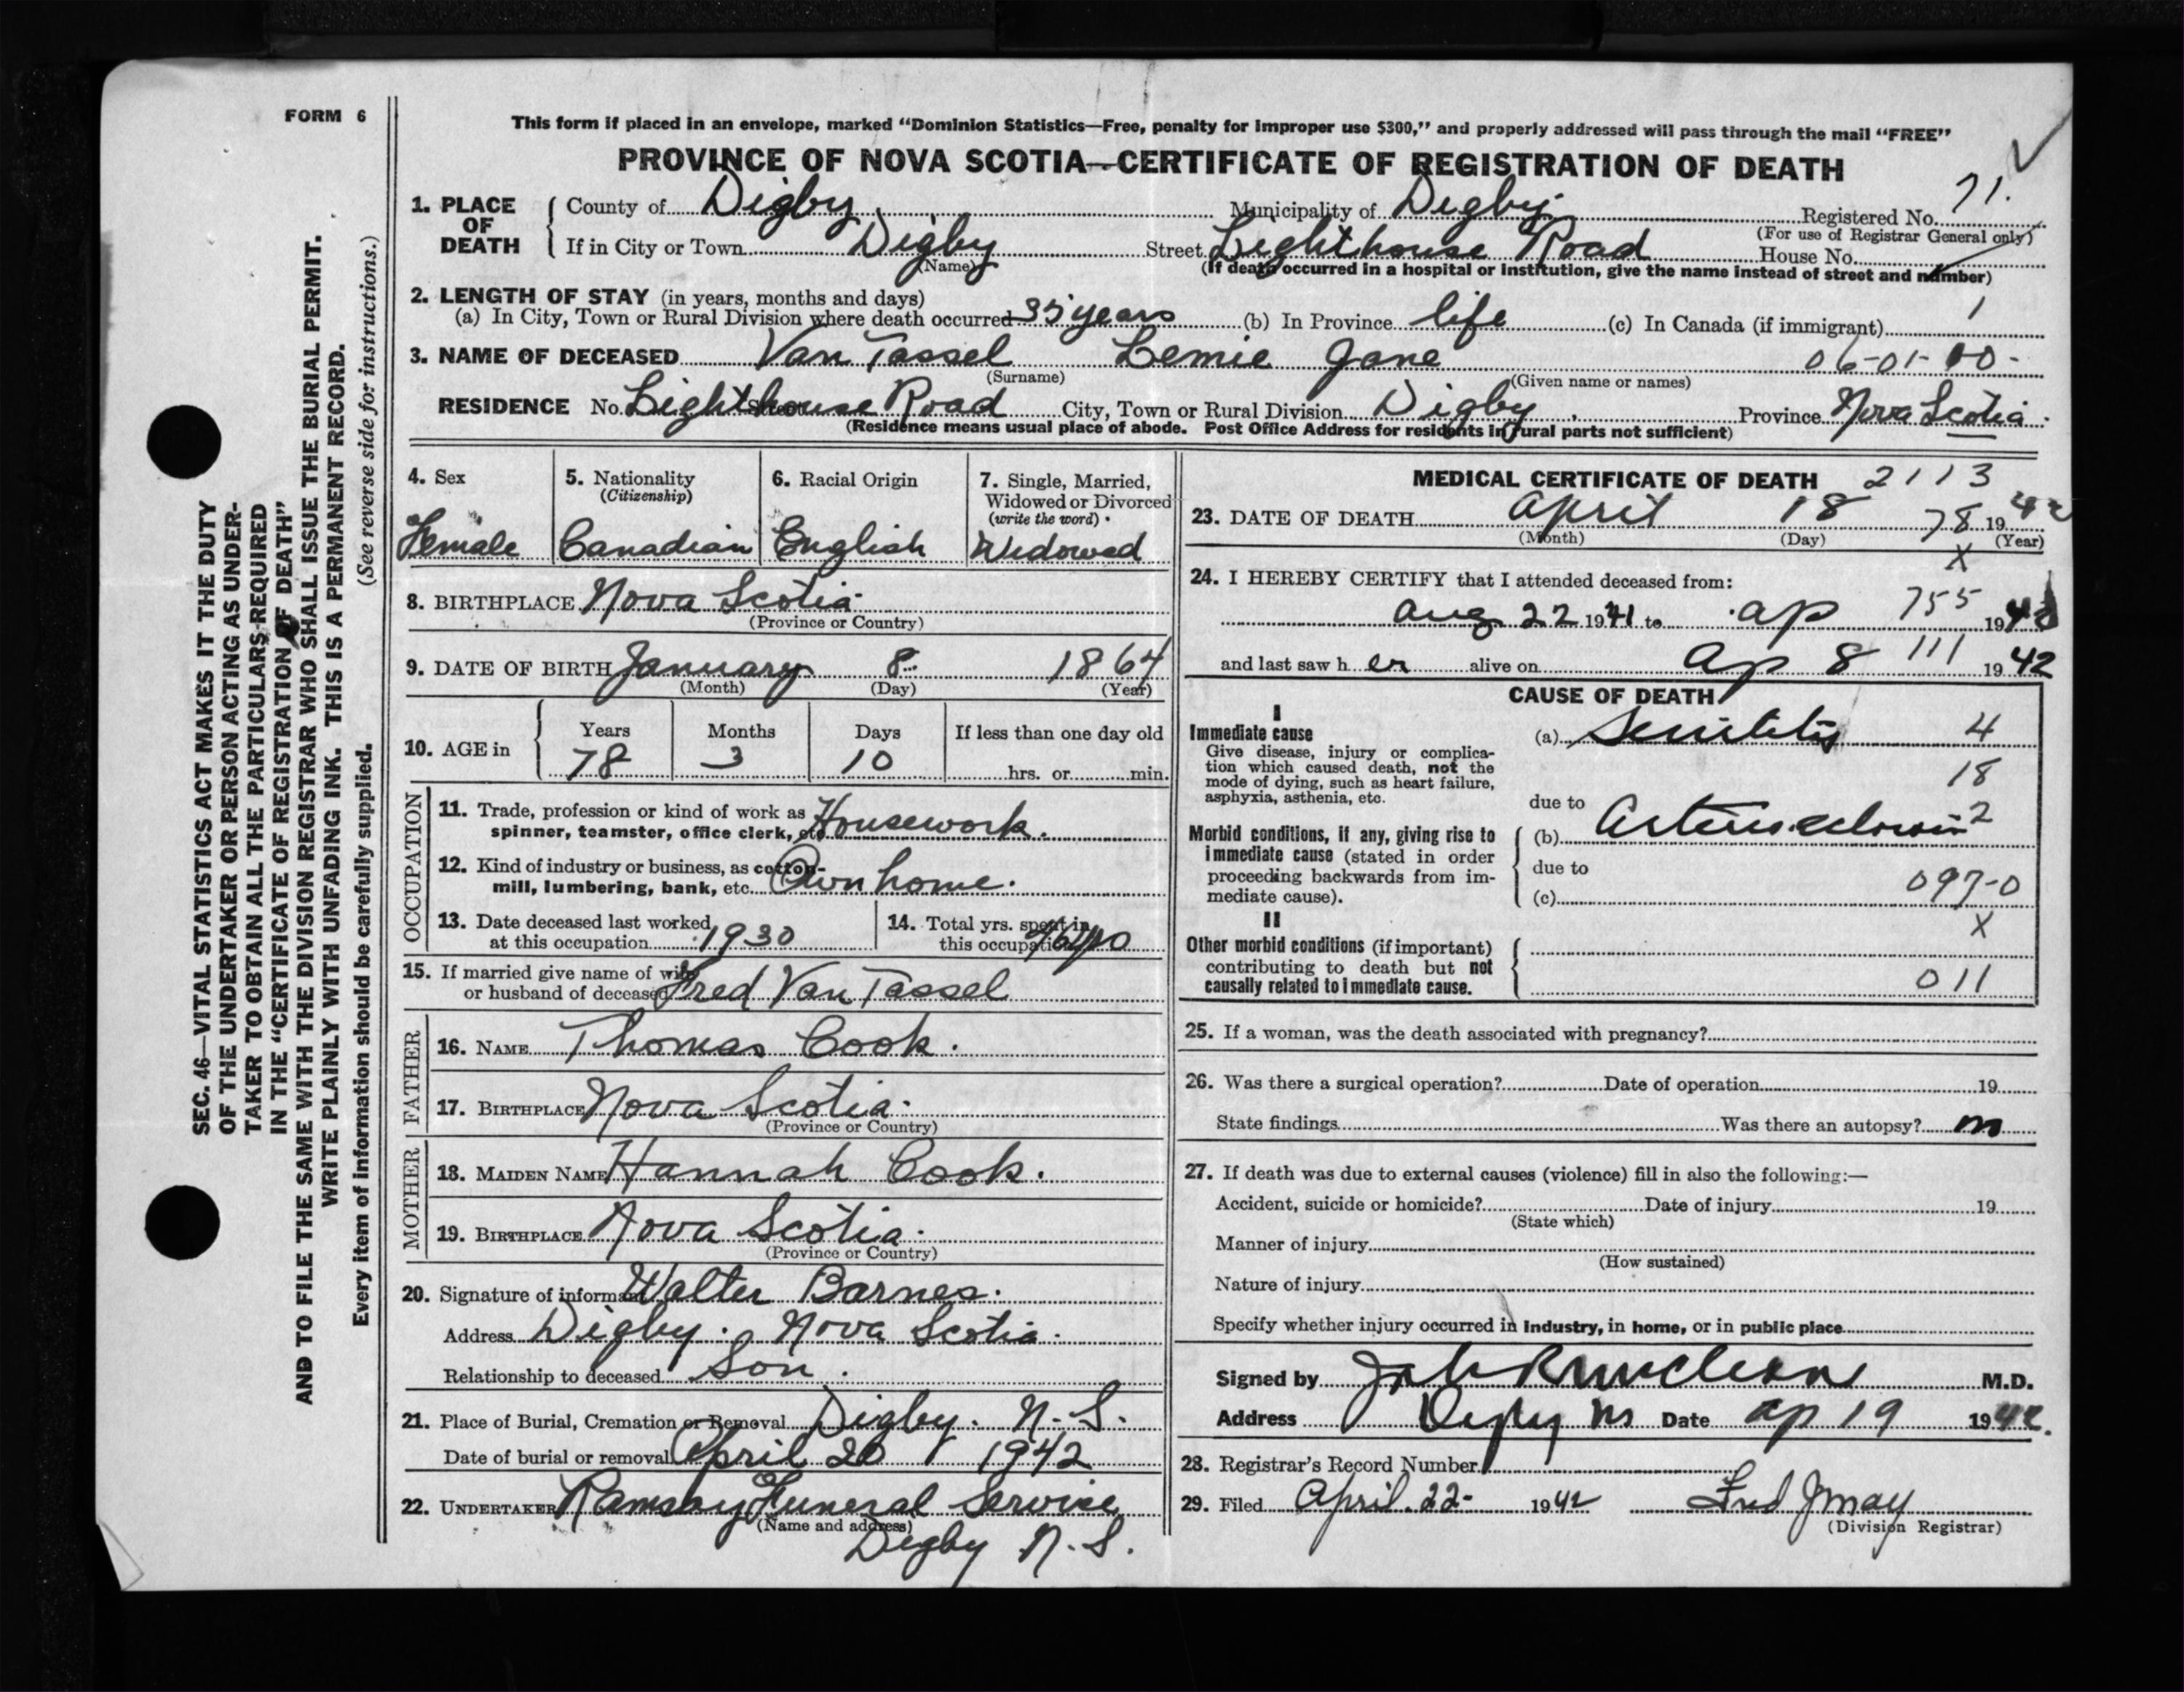 FORM 6
SEC. 46—VITAL STATISTICS ACT MAKES IT THE DUTY
OF THE UNDERTAKER OR PERSON ACTING AS UNDER-
TAKER TO OBTAIN ALL THE PARTICULARS REQUIRED
IN THE "CERTIFICATE OF REGISTRATION OF DEATH"
AND TO FILE THE SAME WITH THE DIVISION REGISTRAR WHO SHALL ISSUE THE BURIAL PERMIT.
WRITE PLAINLY WITH UNFADING INK. THIS IS A PERMANENT RECORD.
Every item of information should be carefully supplied. (See reverse side for instructions.)
This form if placed in an envelope, marked "Dominion Statistics—Free, penalty for improper use $300," and properly addressed will pass through the mail "FREE"
PROVINCE OF NOVA SCOTIA—CERTIFICATE OF REGISTRATION OF DEATH
1. PLACE OF DEATH County of Digby Municipality of Digby Registered No. 71.
(For use of Registrar General only)
If in City or Town Digby Street Lighthouse Road House No.
(Name) (If death occurred in a hospital or institution, give the name instead of street and number)
2. LENGTH OF STAY (in years, months and days)
(a) In City, Town or Rural Division where death occurred 35 years (b) In Province life (c) In Canada (if immigrant) 1
3. NAME OF DECEASED Van Tassel Lemie Jane 06-01-00-
(Surname) (Given name or names)
RESIDENCE No. Lighthouse Road Street City, Town or Rural Division Digby Province Nova Scotia
(Residence means usual place of abode. Post Office Address for residents in rural parts not sufficient)
4. Sex Female
5. Nationality (Citizenship) Canadian
6. Racial Origin English
7. Single, Married, Widowed or Divorced (write the word) Widowed
8. BIRTHPLACE Nova Scotia
(Province or Country)
9. DATE OF BIRTH January 8 1864
(Month) (Day) (Year)
10. AGE in Years Months Days If less than one day old
78 3 10 hrs. or min.
OCCUPATION
11. Trade, profession or kind of work as
spinner, teamster, office clerk, etc. Housework.
12. Kind of industry or business, as cotton-
mill, lumbering, bank, etc. Own home.
13. Date deceased last worked
at this occupation 1930
14. Total yrs. spent in
this occupation
15. If married give name of wife
or husband of deceased Fred Van Tassel
FATHER
16. NAME Thomas Cook.
17. BIRTHPLACE Nova Scotia.
(Province or Country)
MOTHER
18. MAIDEN NAME Hannah Cook.
19. BIRTHPLACE Nova Scotia.
(Province or Country)
20. Signature of informant Walter Barnes.
Address Digby. Nova Scotia.
Relationship to deceased Son.
21. Place of Burial, Cremation or Removal Digby. N.S.
Date of burial or removal April 20 1942
22. UNDERTAKER Ramsay Funeral Service
(Name and address)
Digby N.S.
MEDICAL CERTIFICATE OF DEATH 2113
23. DATE OF DEATH April 18 78 1942
(Month) (Day) (Year)
X
24. I HEREBY CERTIFY that I attended deceased from:
Aug 22 1941 to ap 755 1942
and last saw her alive on Ap 8 111 1942
CAUSE OF DEATH
I
Immediate cause
Give disease, injury or complica-
tion which caused death, not the
mode of dying, such as heart failure,
asphyxia, asthenia, etc.
(a) 4
18
due to
Morbid conditions, if any, giving rise to
immediate cause (stated in order
proceeding backwards from im-
mediate cause).
(b) 2
due to
(c) 097-0
X
II
Other morbid conditions (if important)
contributing to death but not
causally related to immediate cause.
011
25. If a woman, was the death associated with pregnancy?
26. Was there a surgical operation? Date of operation 19
State findings Was there an autopsy? no
27. If death was due to external causes (violence) fill in also the following:—
Accident, suicide or homicide? Date of injury 19
(State which)
Manner of injury
(How sustained)
Nature of injury
Specify whether injury occurred in industry, in home, or in public place
Signed by M.D.
Address Digby NS Date Ap 19 1942.
28. Registrar's Record Number
29. Filed April. 22- 1942 Fred J May
(Division Registrar)